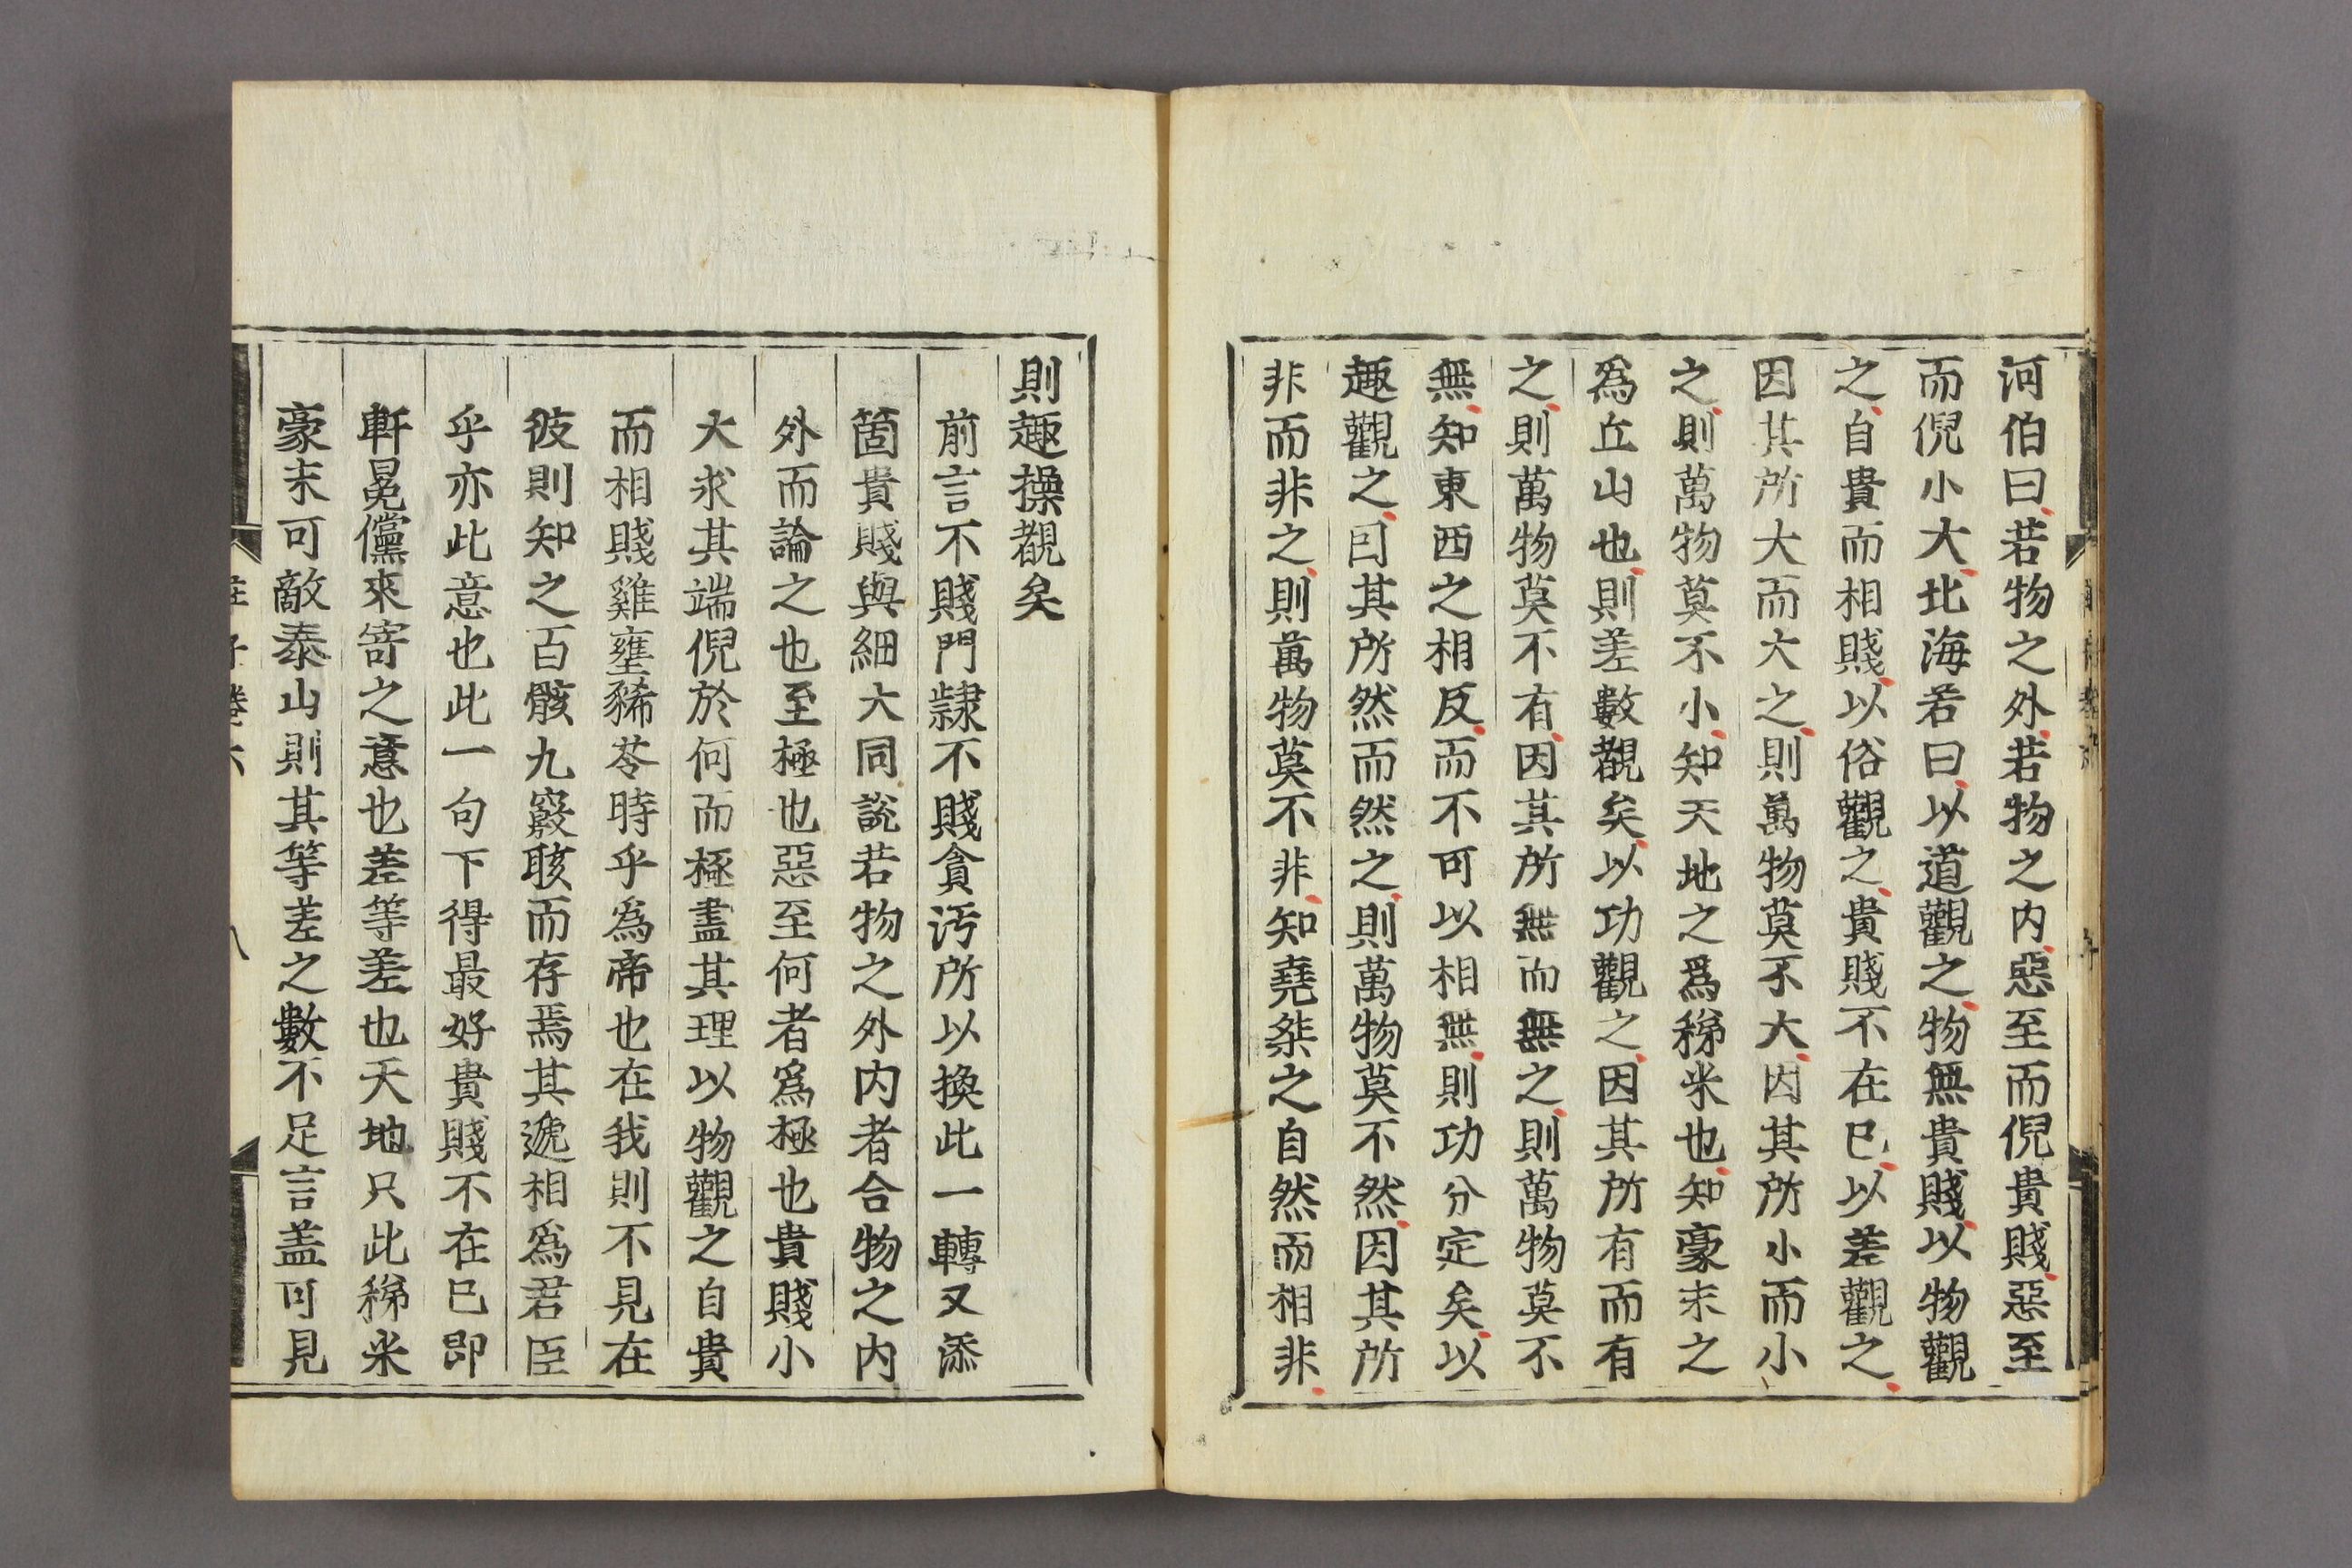 河伯曰若物之外若物之内惡至而倪貴賤惡至
而倪小大北海若曰以道觀之物無貴賤以物觀
之自貴而相賤以俗觀之貴賤不在已以差觀之
因其所大而大之則萬物莫不大因其所小而小
之則萬物莫不小知天地之爲稊米也知豪末之
爲丘山也則差數覩矣以功觀之因其所有而有
之則萬物莫不有因其所無而無之則萬物莫不
無知東西之相反而不可以相無則功分定矣以
趣觀之因其所然而然之則萬物莫不然因其所
非而非之則萬物莫不非知堯桀之自然而相非
則趣操覩矣
前言不賤門隸不賤貪汚所以換此一轉又添
箇貴賤與細大同說若物之外内者合物之内
外而論之也至極也惡至何者爲極也貴賤小
大求其端倪於何而極盡其理以物觀之自貴
而相賤雞壅豨苓時乎爲帝也在我則不見在
彼則知之百骸九竅晐而存焉其遞相爲君臣
乎亦此意也此一句下得最好貴賤不在已即
軒冕儻來寄之意也差等差也天地只此稊米
豪末可敵泰山則其等差之數不足言盖可見
莊子卷六
八